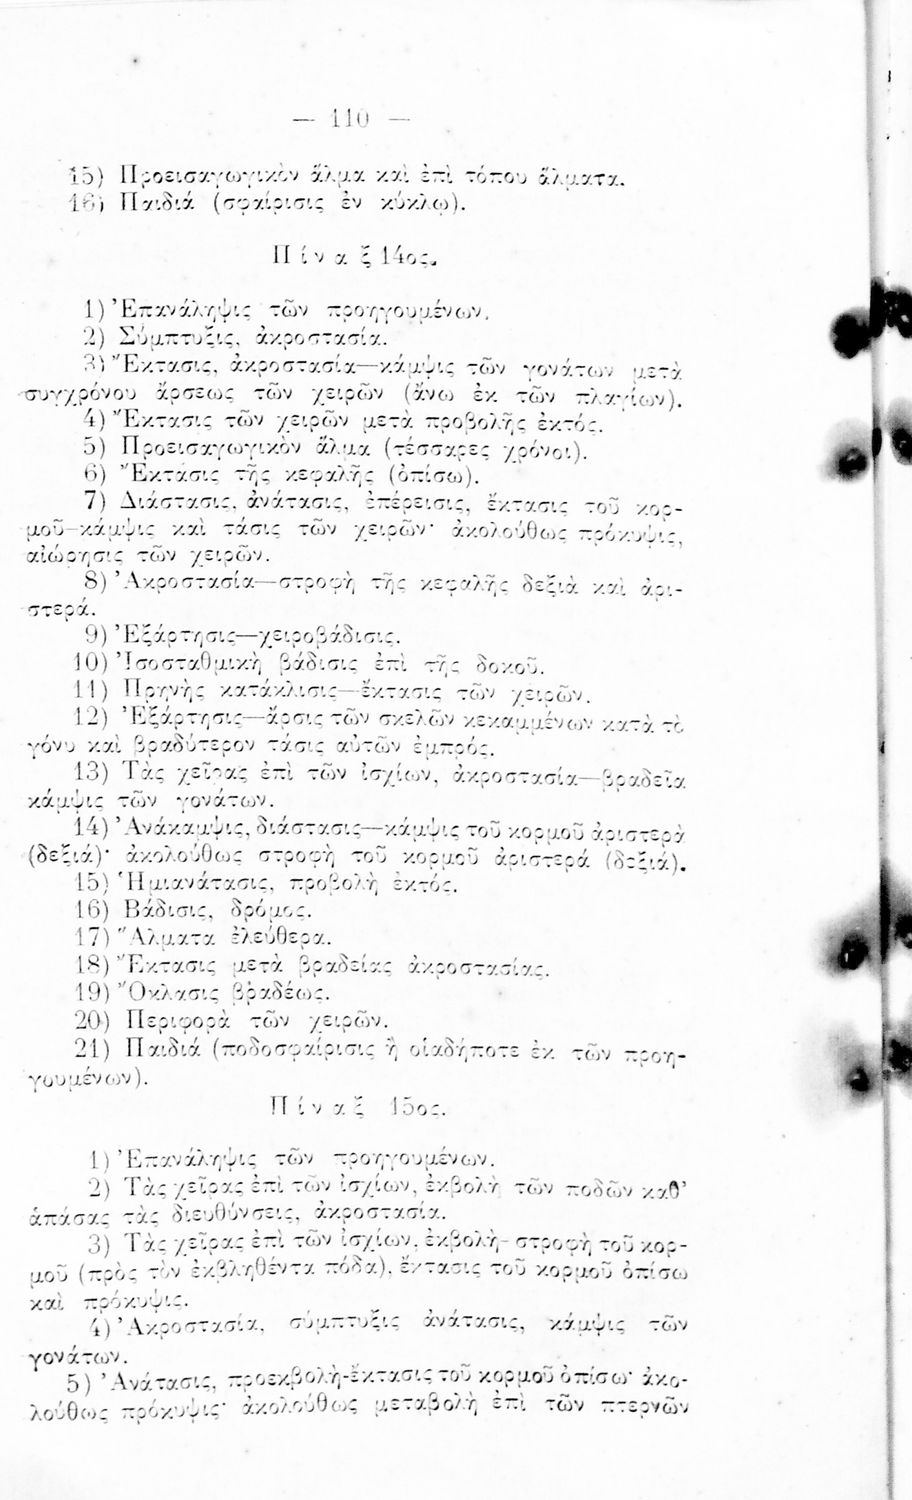 — 110 —
15) Προεισαγωγικὸν ἅλμα καὶ ἐπὶ τόπου ἅλματα.
16) Παιδιά (σφαίρισις ἐν κύκλῳ).
Πίναξ 14ος.
1) Ἐπανάληψις τῶν προηγουμένων.
2) Σύμπτυξις, ἀκροστασία.
3) Ἔκτασις, ἀκροστασία—κάμψις τῶν γονάτων μετὰ
συγχρόνου ἄρσεως τῶν χειρῶν (ἄνω ἐκ τῶν πλαγίων).
4) Ἔκτασις τῶν χειρῶν μετὰ προβολῆς ἐκτός.
5) Προεισαγωγικὸν ἅλμα (τέσσαρες χρόνοι).
6) Ἔκτασις τῆς κεφαλῆς (ὀπίσω).
7) Διάστασις, ἀνάτασις, ἐπέρεισις, ἔκτασις τοῦ κορ-
μοῦ-κάμψις καὶ τάσις τῶν χειρῶν· ἀκολούθως πρόκυψις,
αἰώρησις τῶν χειρῶν.
8) Ἀκροστασία—στροφὴ τῆς κεφαλῆς δεξιὰ καὶ ἀρι-
στερά.
9) Ἐξάρτησις—χειροβάδισις.
10) Ἰσοσταθμικὴ βάδισις ἐπὶ τῆς δοκοῦ.
11) Πρηνὴς κατάκλισις—ἔκτασις τῶν χειρῶν.
12) Ἐξάρτησις—ἄρσις τῶν σκελῶν κεκαμμένων κατὰ τὸ
γόνυ καὶ βραδύτερον τάσις αὐτῶν ἐμπρός.
13) Τὰς χεῖρας ἐπὶ τῶν ἰσχίων, ἀκροστασία—βραδεῖα
κάμψις τῶν γονάτων.
14) Ἀνάκαμψις, διάστασις—κάμψις τοῦ κορμοῦ ἀριστερὰ
(δεξιά)· ἀκολούθως στροφὴ τοῦ κορμοῦ ἀριστερά (δεξιά).
15) Ἡμιανάτασις, προβολὴ ἐκτός.
16) Βάδισις, δρόμος.
17) Ἅλματα ἐλεύθερα.
18) Ἔκτασις μετὰ βραδείας ἀκροστασίας.
19) Ὄκλασις βραδέως.
20) Περιφορὰ τῶν χειρῶν.
21) Παιδιά (ποδοσφαίρισις ἢ οἱαδήποτε ἐκ τῶν προη-
γουμένων).
Πίναξ 15ος.
1) Ἐπανάληψις τῶν προηγουμένων.
2) Τὰς χεῖρας ἐπὶ τῶν ἰσχίων, ἐκβολὴ τῶν ποδῶν καθ’
ἁπάσας τὰς διευθύνσεις, ἀκροστασία.
3) Τὰς χεῖρας ἐπὶ τῶν ἰσχίων, ἐκβολὴ-στροφὴ τοῦ κορ-
μοῦ (πρὸς τὸν ἐκβληθέντα πόδα), ἔκτασις τοῦ κορμοῦ ὀπίσω
καὶ πρόκυψις.
4) Ἀκροστασία, σύμπτυξις ἀνάτασις, κάμψις τῶν
γονάτων.
5) Ἀνάτασις, προεκβολὴ-ἔκτασις τοῦ κορμοῦ ὀπίσω· ἀκο-
λούθως πρόκυψις· ἀκολούθως μεταβολὴ ἐπὶ τῶν πτερνῶν